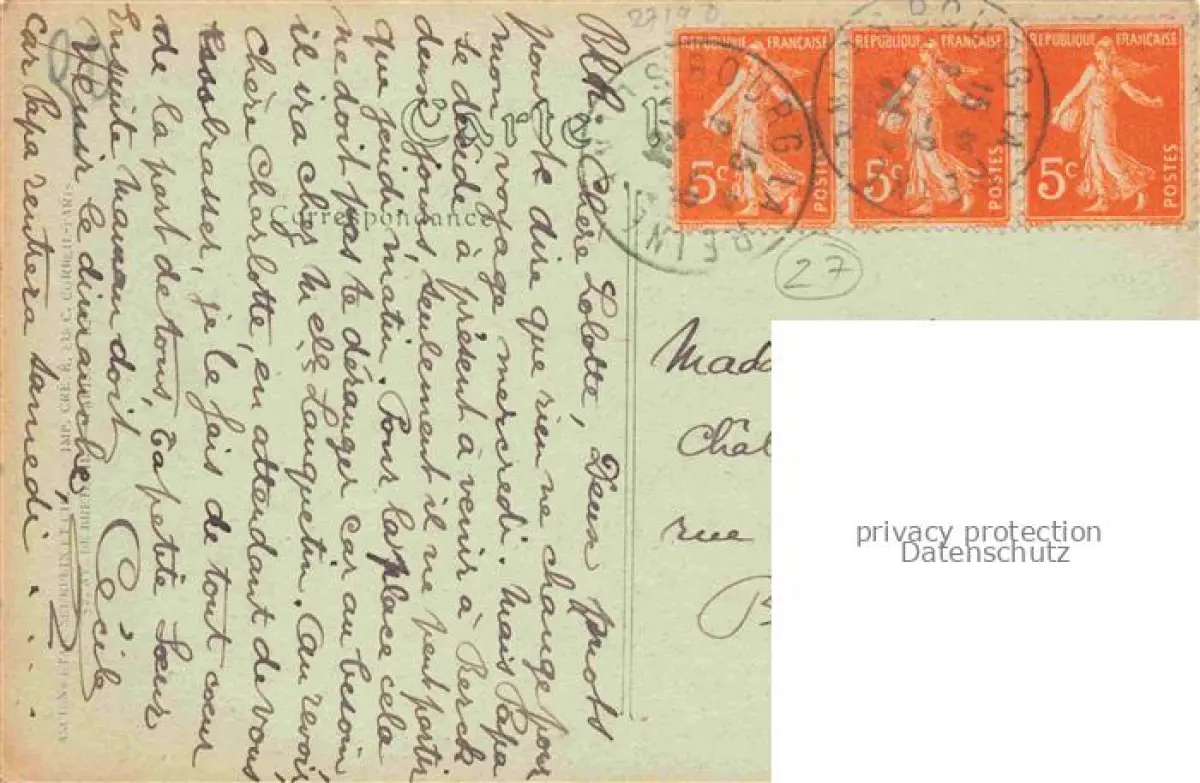 27190
Chère Lolotte, Deux mots
pour te dire que rien ne change pour
mon voyage mercredi. Mais Papa
se décide à présent à venir à Berck
deux jours, seulement il ne peut partir
que jeudi matin. Pour la place cela
ne doit pas te déranger car au besoin
il ira chez M Lanquetin. Au revoir
chère Charlotte, en attendant de vous
embrasser, je le fais de tout cœur
de la part de tous, Ta petite Sœur
Cécile
Ensuite maman doit
venir le dimanche,
car Papa rentrera samedi . . . .
Correspondance
REPUBLIQUE FRANÇAISE
5c
POSTES
REPUBLIQUE FRANÇAISE
5c
POSTES
REPUBLIQUE FRANÇAISE
5c
POSTES
27
Mada
Chal
rue
privacy protection
Datenschutz